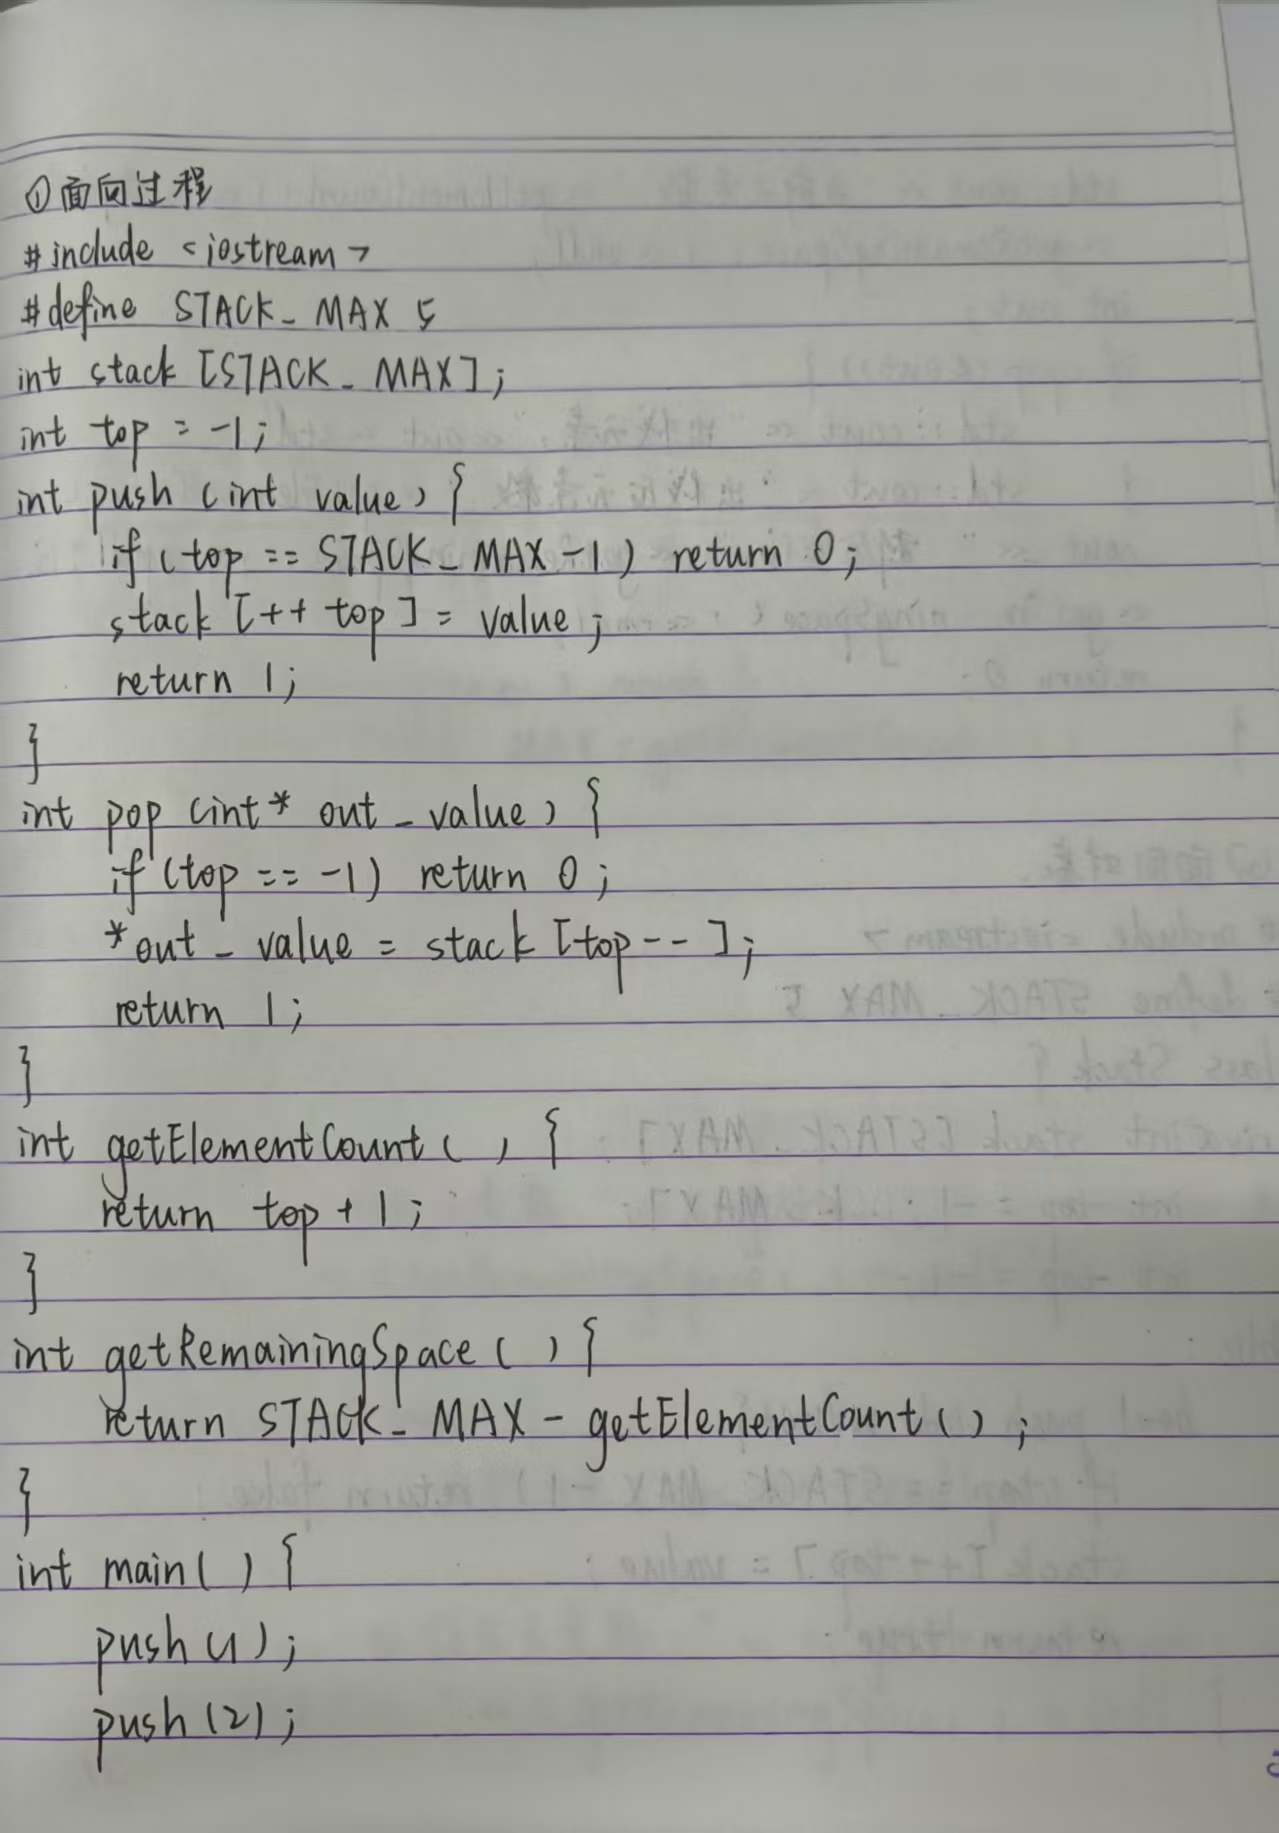 ①面向过程
#include <iostream>
#define STACK_MAX 5
int stack [STACK_MAX];
int top = -1;
int push (int value) {
if (top == STACK_MAX -1) return 0;
stack [++ top] = value;
return 1;
}
int pop (int* out_value) {
if (top == -1) return 0;
*out_value = stack [top--];
return 1;
}
int getElementCount ( ) {
return top + 1;
}
int getRemainingSpace ( ) {
return STACK_MAX - getElementCount ( );
}
int main( ) {
push (1);
push (2);